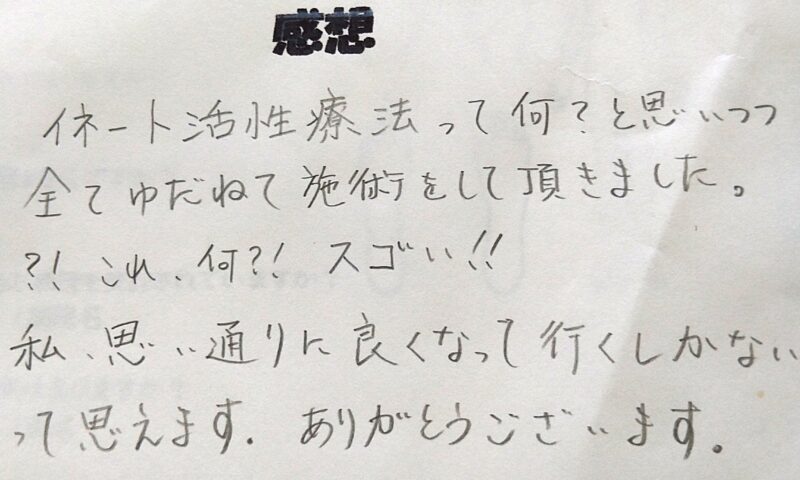 感想
イネート活性療法って何？と思いつつ
全てゆだねて施術をして頂きました。
?! これ、何?! スゴい!!
私、思い通りに良くなって行くしかない
って思えます. ありがとうございます。